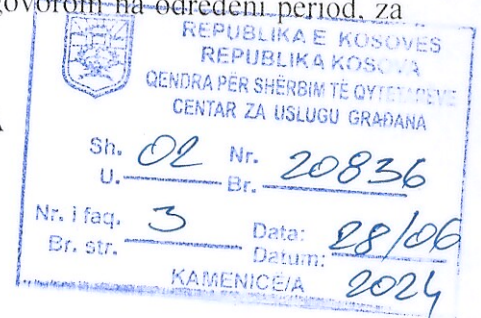 govorom na određeni period, za
REPUBLIKA E KOSOVËS
REPUBLIKA KOSOVA
QENDRA PËR SHËRBIM TË QYTETARËVE
CENTAR ZA USLUGU GRAĐANA
Sh. 02 Nr. 20836
U. Br.
Nr. i faq. 3 Data: 28/06
Br. str. Datum: 2024
KAMENICË/A